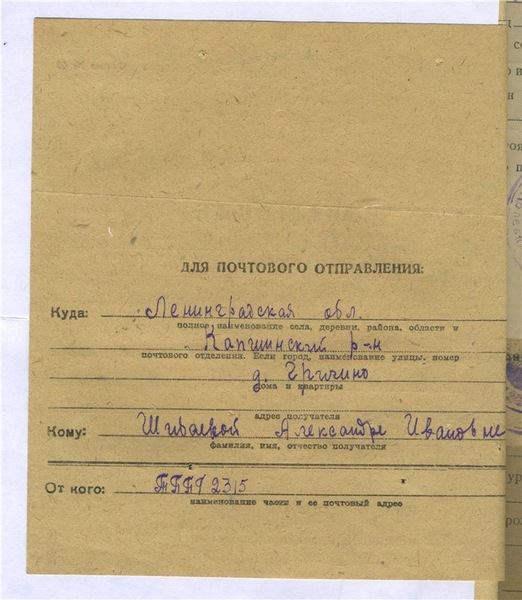 ДЛЯ ПОЧТОВОГО ОТПРАВЛЕНИЯ:
Куда: Ленинградская обл.
полное наименование села, деревни, района, области и
Капшинский р-н
почтового отделения. Если город, наименование улицы, номер
д. Гричино
дома и квартиры
адрес получателя
Кому: Шибаевой Александре Ивановне
фамилия, имя, отчество получателя
От кого: ТППГ 2315
наименование части и ее почтовый адрес